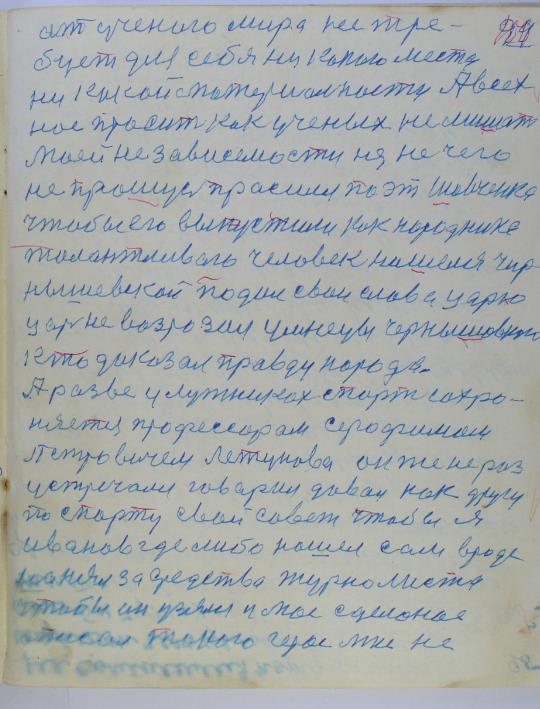 ат ученого мира не тре-
бует для себя ни какого места
ни какой матерьальности А всех
ное просит как ученых не лишат
Моей независемости ня нечего
не прошус прасили поэт Шовченка
чтобы его выпустили как народника
толантливаго человек нашелся Чир
нышевской подал свои слова царю
царь не возрозил
Кто доказал правду народа.
А разве у лужниках спорт сохро-
няетця профессорам Серофимам
Петровичем Летунова он же не роз
устречали говарил довал как другу
по спорту свой совет чтобы я
Иванов где либо нашел сам вроде
за средства журнолиста
чтобы он узял и мое сделоное
описал такого героя мы не